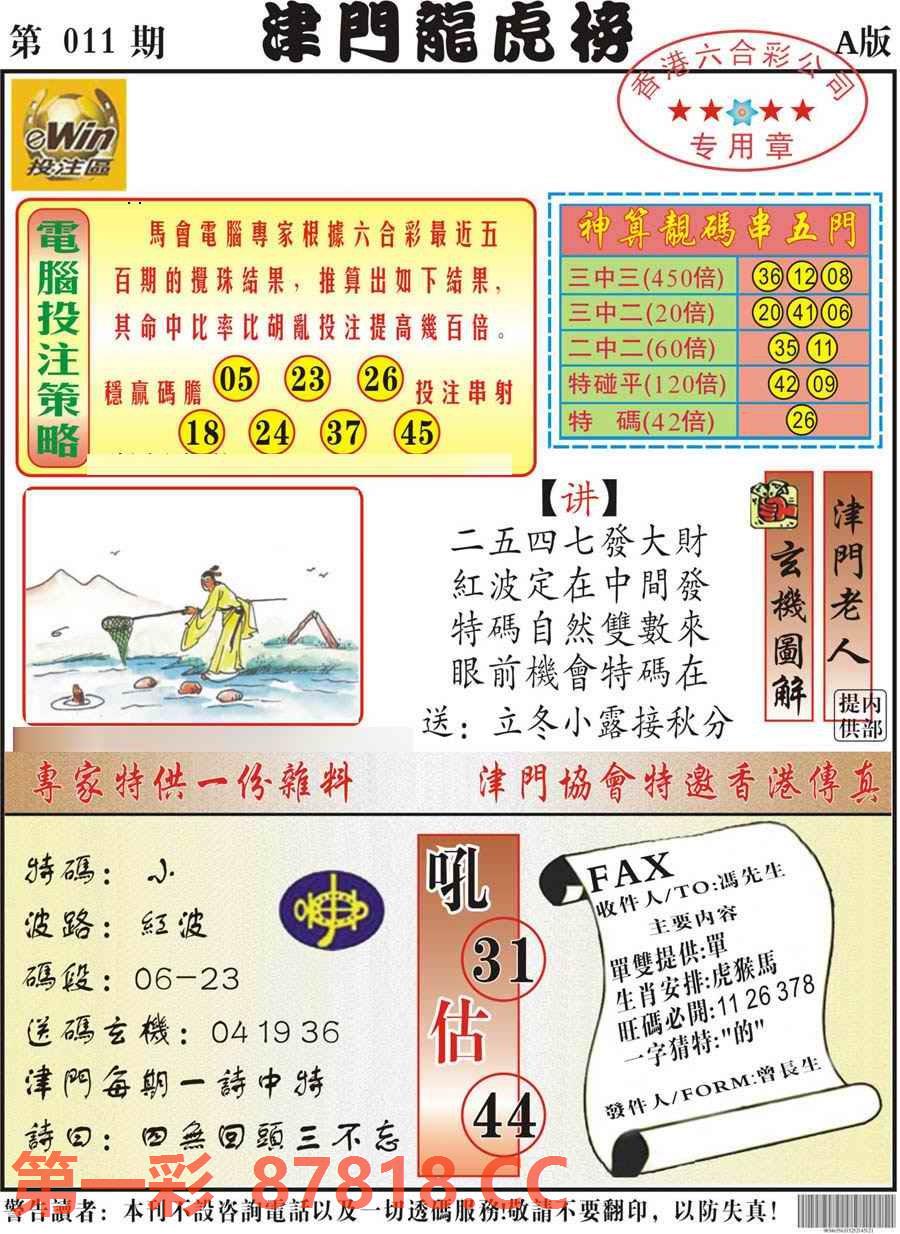 第 011 期
津門龍虎榜
A版
香港六合彩公司
专用章
eWin
投注區
電腦投注策略
馬會電腦專家根據六合彩最近五
百期的攪珠結果，推算出如下結果，
其命中比率比胡亂投注提高幾百倍。
穩贏碼膽 05 23 26 投注串射
18 24 37 45
神算靚碼串五門
三中三(450倍) 36 12 08
三中二(20倍) 20 41 06
二中二(60倍) 35 11
特碰平(120倍) 42 09
特 碼(42倍) 26
【讲】
二五四七發大財
紅波定在中間發
特碼自然雙數來
眼前機會特碼在
送：立冬小露接秋分
玄機圖解
津門老人
内部提供
專家特供一份雜料
津門協會特邀香港傳真
特碼：小
波路：紅波
碼段：06-23
送碼玄機：04 19 36
津門每期一詩中特
詩曰：四無回頭三不忘
吼
31
估
44
FAX
收件人/TO:馮先生
主要内容
單雙提供:單
生肖安排:虎猴馬
旺碼必開:11 26 378
一字猜特:"的"
發件人/FORM:曾長生
第一彩 87818.CC
警告讀者：本刊不設咨詢電話以及一切透碼服務!敬請不要翻印，以防失真!